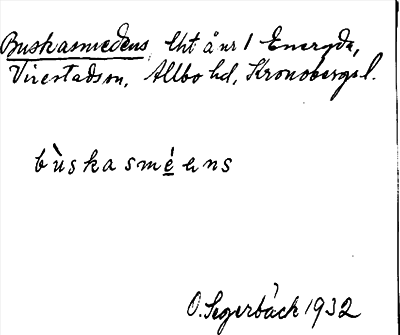 Buskasmedens, lht å nr 1 Eneryda,
Virestads sn, Allbo hd, Kronobergs l.
bùskasméens
O. Segerbäck 1932